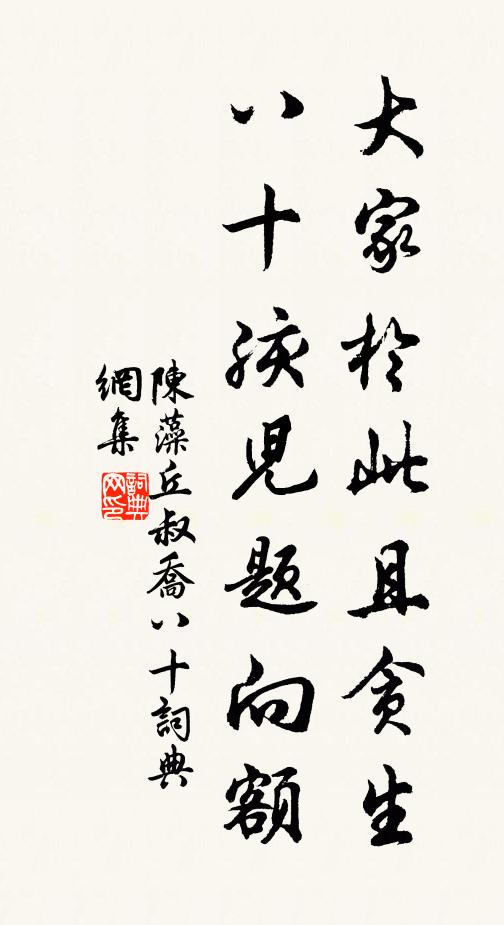 大家於此且貪生
八十孩児題向額
陳藻丘叔喬八十詞典
網集
詞典
网印